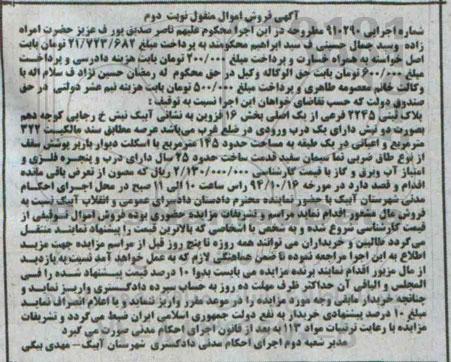 آگهی فروش اموال منقول نوبت دوم
شماره اجرایی ۹۱۰۲۹۰ مطروحه در این اجرا محکوم علیهم ناصر صدیق پور ف عزیز حضرت امراه
زاده وسید جمال حسینی ف سید ابراهیم محکومند به پرداخت مبلغ ۲۱/۷۲۳/۶۸۲ تومان بابت
اصل خواسته به همراه خسارت و پرداخت مبلغ ۲۰۰/۰۰۰ تومان بابت هزینه دادرسی و پرداخت
مبلغ ۶۰۰/۰۰۰ تومان بابت حق الوکاله وکیل در حق محکوم له رمضان حسین نژاد ف سلام اله با
وکالت خانم معصومه طاهری و پرداخت مبلغ ۵۰۰/۰۰۰ تومان بابت هزینه نیم عشر دولتی در حق
صندوق دولت که حسب تقاضای خواهان این اجرا نسبت به توقیف :
پلاک ثبتی ۲۲۴۵ فرعی از یک اصلی بخش ۱۶ قزوین به نشانی آبیک نبش خ رجایی کوچه دهم
بصورت دو نبش دارای یک درب ورودی در ضلع غرب می‌باشد عرصه مطابق سند مالکیست ۳۲۲
مترمربع و اعیانی در یک طبقه به مساحت حدود ۱۴۵ مترمربع با اسکلت دیوار باربر پوشش سقف
از نوع طاق ضربی نما سیمان سفید قدمت ساخت حدود ۲۵ سال دارای درب و پنجره فلزی و
امتیاز آب وبرق و گاز با قیمت کارشناسی ۲/۱۳۰/۰۰۰/۰۰۰ ریال که مصون از تعرض باقی مانده
اقدام و قصد دارد در مورخه ۹۴/۱۰/۱۶ راس ساعت ۱۰ الی ۱۱ صبح در محل اجرای احکام
مدنی شهرستان آبیک با حضور نماینده محترم دادستان دادسرای عمومی و انقلاب آبیک نسبت به
فروش مال مشعور اقدام نماید مراسم و تشریفات مزایده حضوری بوده فروش اموال توقیفی از
قیمت کارشناسی شروع شده و به شخص یا اشخاصی که بالاترین قیمت را پیشنهاد نمایند منتقل
می‌گردد طالبین و خریداران می توانند همه روزه تا پنج روز قبل از مراسم مزایده جهت مزید
اطلاع به این اجرا مراجعه نموده تا ضمن هماهنگی لازم که به عمل خواهد آمد نسبت به بازدید
از مال مزبور اقدام نمایند برنده مزایده می بایست بدوا ۱۰ درصد قیمت پیشنهاد شده را فسی
المجلس و الباقی آن حداکثر ظرف مهلت ده روز به حساب سپرده دادگستری واریز نماید و
چنانچه خریدار مابقی وجه مورد مزایده را در موعد مقرر واریز ننماید و یا اعلام انصراف نماید
مبلغ ۱۰ درصد پیشنهادی خریدار به نفع دولت جمهوری اسلامی ایران ضبط می‌گردد و تشریفات
مزایده با رعایت ترتیبات مواد ۱۱۳ به بعد از قانون اجرای احکام مدنی صورت می گیرد
مدیر شعبه دوم اجرای احکام مدنی دادگستری شهرستان آبیک – مهدی بیگی